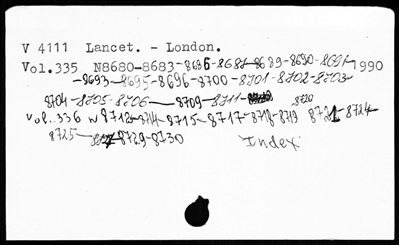 V 4111 Lancet. - London.
Vol.335 N8680-8683-8686-8687-8689-8690-8691-1990
-8693-8695-8696-8700-8701-8702-8703
8704-8705-8706-8709-8711- 8720
Vol. 336 N 8712-8714-8715-8717-8718-8719 8721-8724
8725- 8729-8730 Index